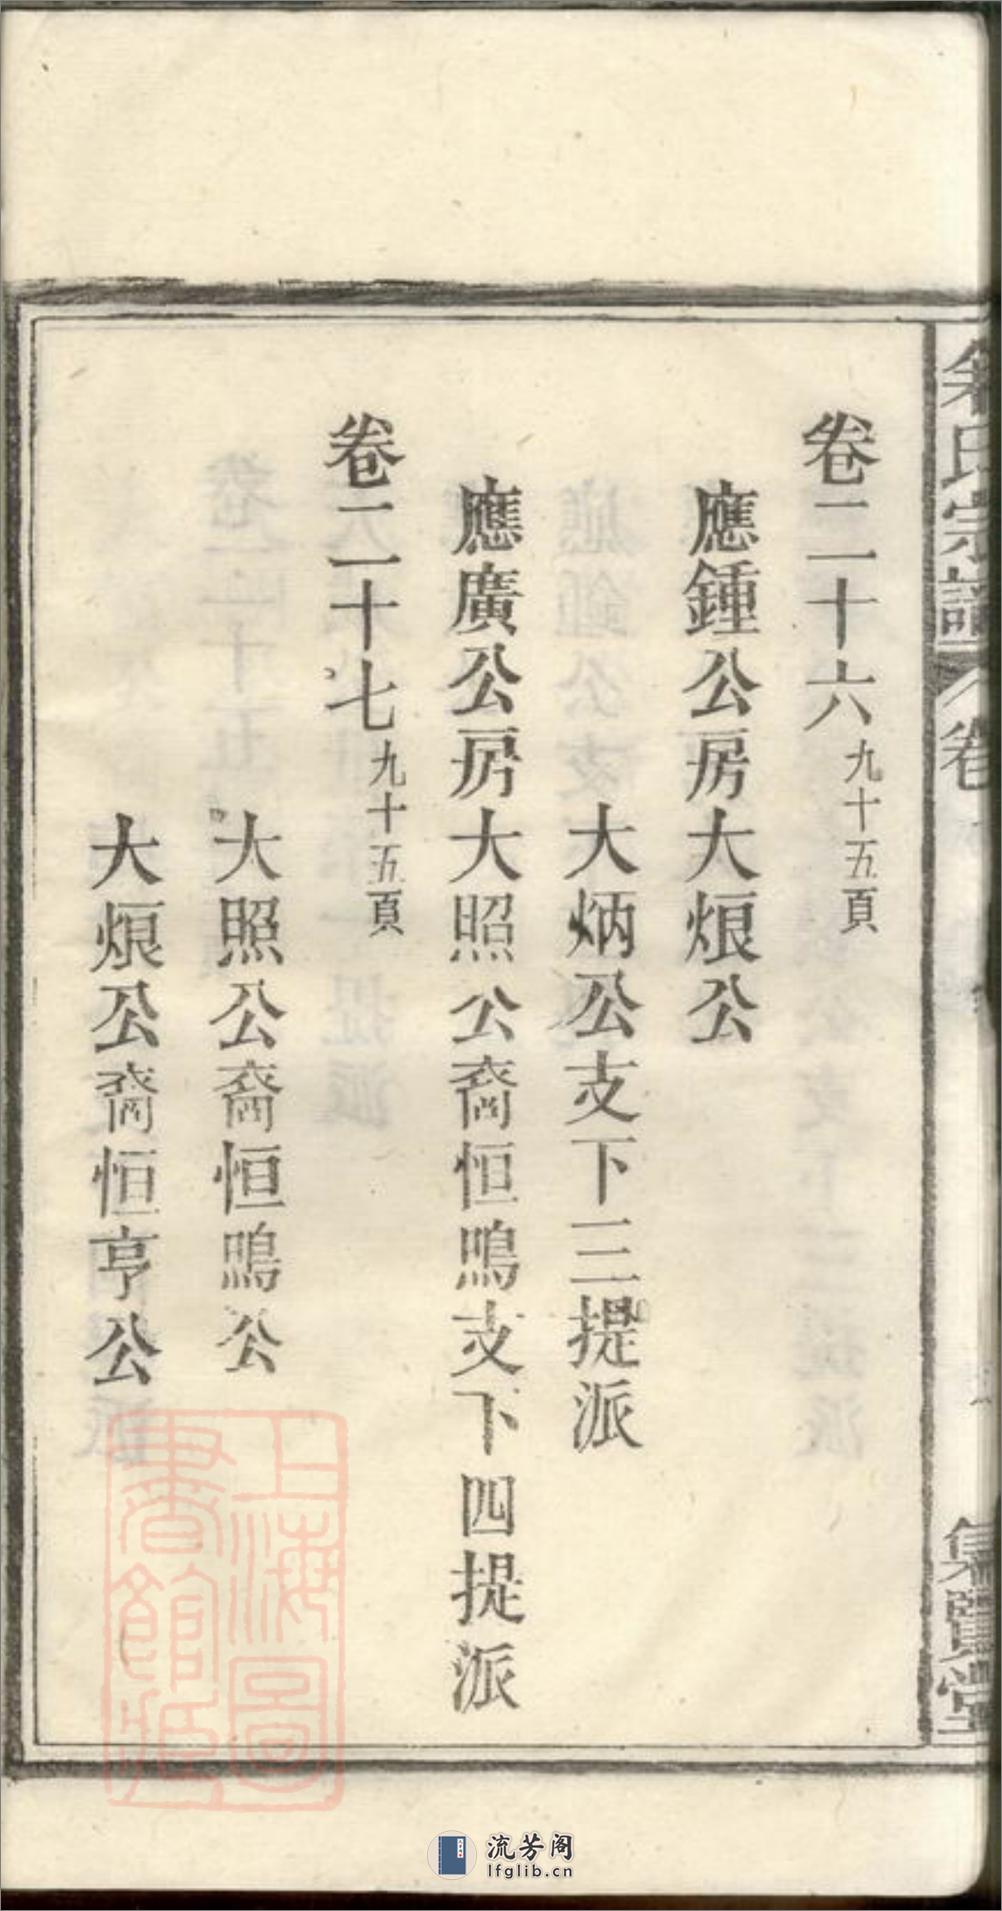 卷二十六九十五頁
應鍾公房大烺公
大炳公支下三提派
應廣公房大照公裔恒鳴支下四提派
卷二十七九十五頁
大照公裔恒鳴公
大烺公裔恒亨公
氏宗譜
卷
集覽堂
上海圖書館藏
流芳阁
lfglib.cn